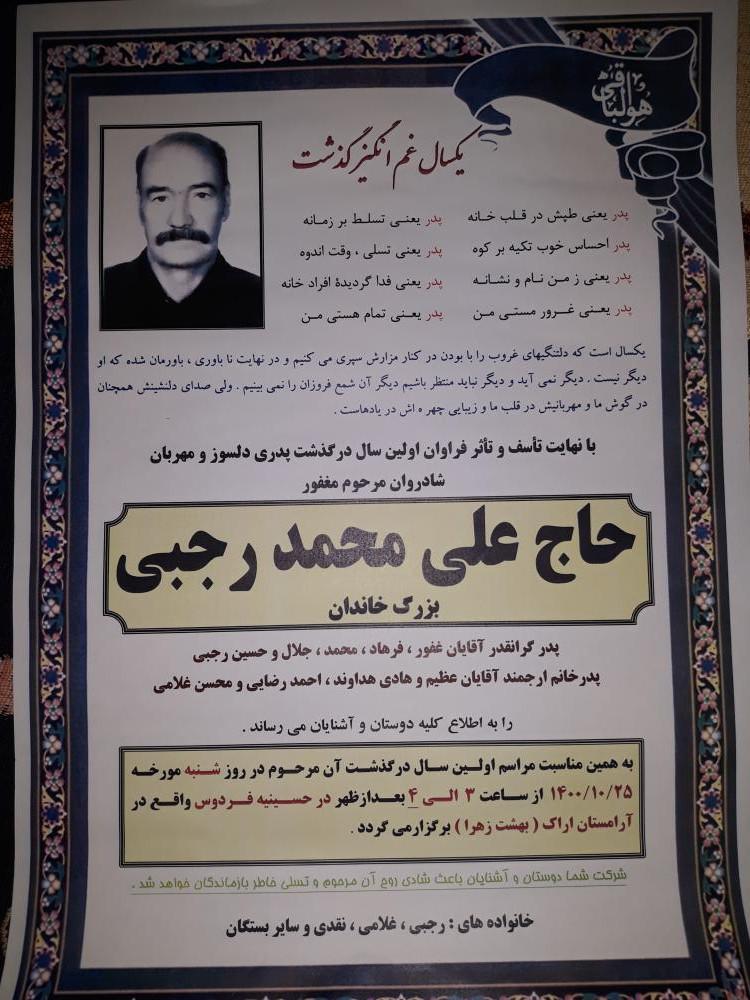 هوالباقی
یکسال غم انگیز گذشت
پدر یعنی طپش در قلب خـانه پدر یعنـی تسلـط بر زمـانه
پدر احساس خوب تکیه بر کوه پدر یعنی تسلی ، وقت اندوه
پدر یعنـی ز مـن نـام و نشـانـه پدر یعنی فدا گردیدهٔ افراد خانه
پدر یعنـی غـرور مستـی مـن پدر یعنـی تمام هستی مـن
یکسال است که دلتنگیهای غروب را با بودن در کنار مزارش سپری می کنیم و در نهایت نا باوری ، باورمان شده که او
دیگر نیست . دیگر نمی آید و دیگر نباید منتظر باشیم دیگر آن شمع فروزان را نمی بینیم . ولی صدای دلنشینش همچنان
در گوش ما و مهربانیش در قلب ما و زیبایی چهر ه اش در یادهاست .
با نهایت تأسف و تأثر فراوان اولین سال درگذشت پدری دلسوز و مهربان
شادروان مرحوم مغفور
حاج علی محمد رجبی
بزرگ خاندان
پدر گرانقدر آقایان غفور ، فرهاد ، محمد ، جلال و حسین رجبی
پدرخانم ارجمند آقایان عظیم و هادی هداوند ، احمد رضایی و محسن غلامی
را به اطلاع کلیه دوستان و آشنایان می رساند .
به همین مناسبت مراسم اولـین سـال درگذشت آن مرحـوم در روز شنـبه مورخـه
۱۴۰۰/۱۰/۲۵ از سـاعت ۳ الـی ۴ بعـدازظهر در حسینیه فـردوس واقع در
آرامستان اراک ( بهشت زهرا ) برگزارمی گردد .
شرکت شما دوستان و آشنایان باعث شادی روح آن مرحوم و تسلی خاطر بازماندگان خواهد شد .
خانواده های : رجبی ، غلامی ، نقدی و سایر بستگان